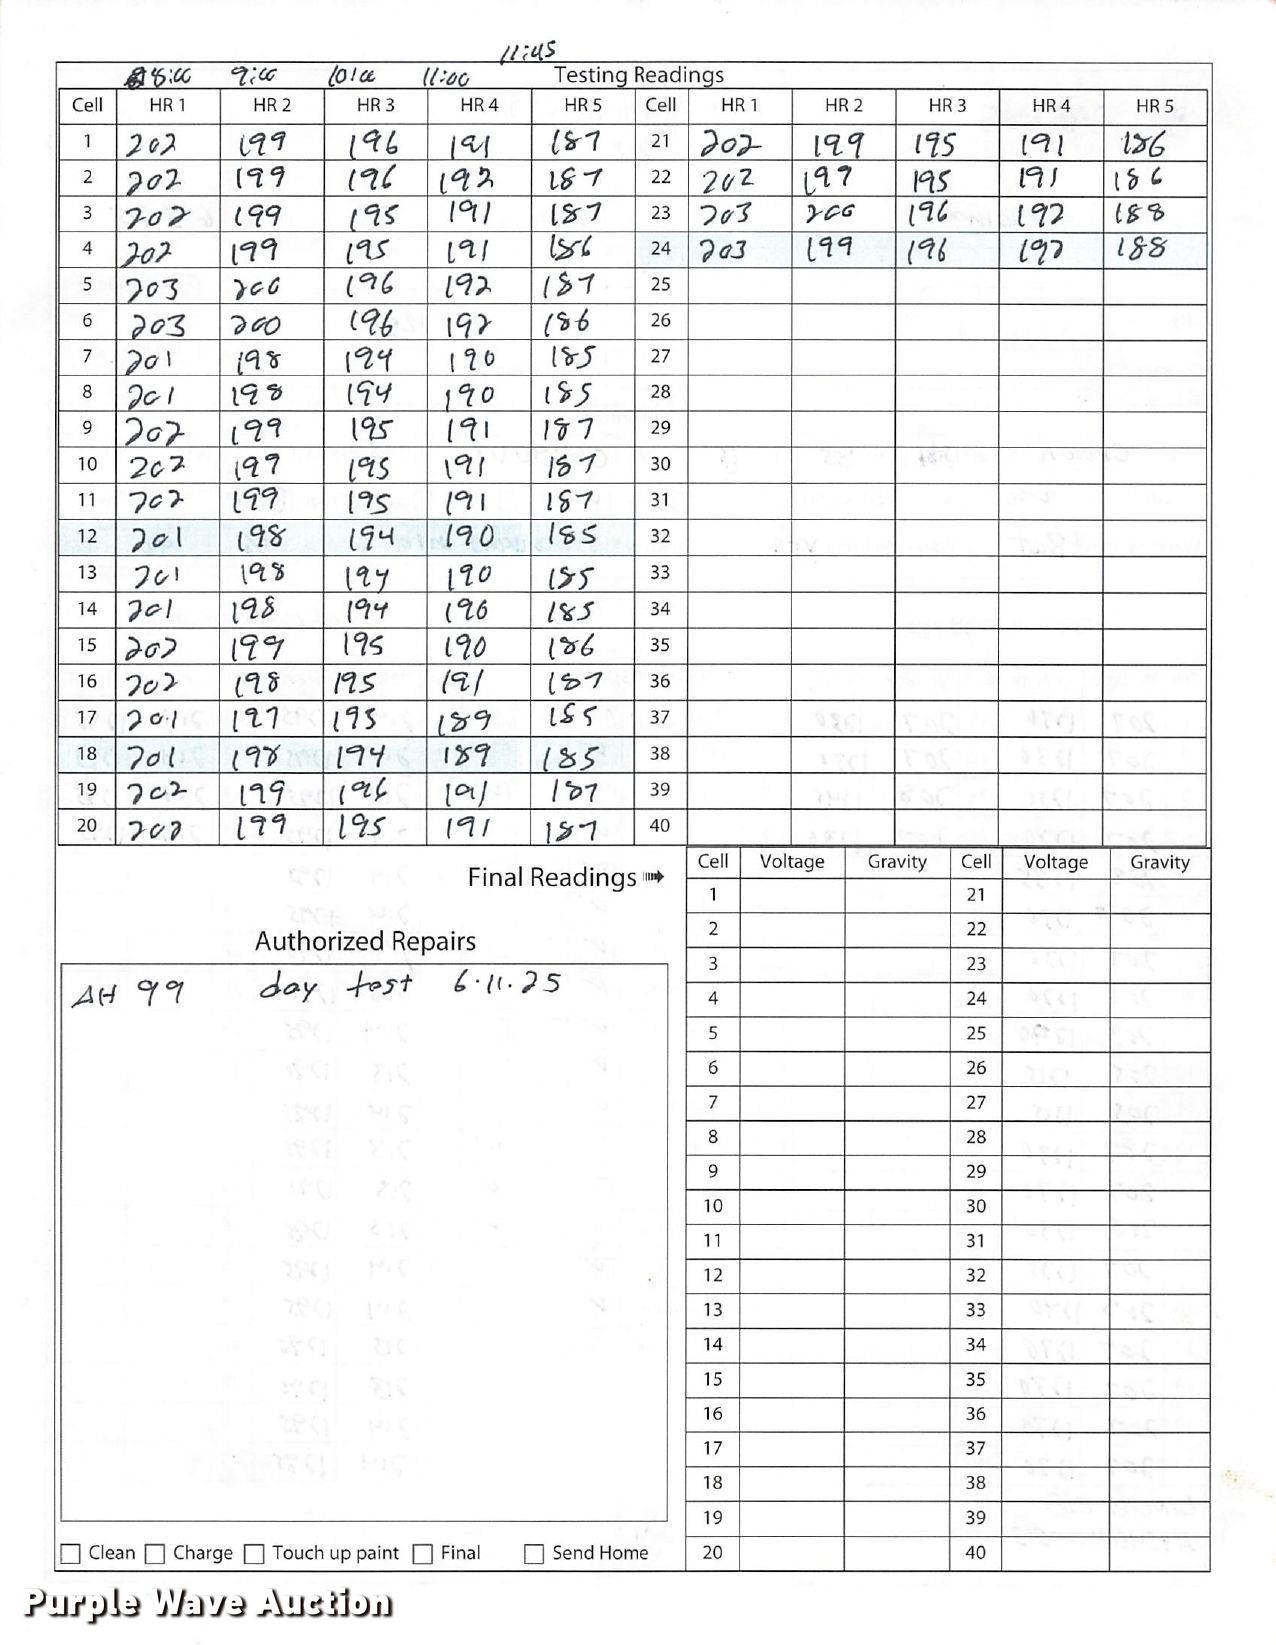 11:45
8:00 9:00 10:00 11:00 Testing Readings
Cell HR 1 HR 2 HR 3 HR 4 HR 5 Cell HR 1 HR 2 HR 3 HR 4 HR 5
1 202 199 196 191 187 21 202 199 195 191 186
2 202 199 196 192 187 22 202 197 195 191 186
3 202 199 195 191 187 23 203 200 196 192 188
4 202 199 195 191 186 24 203 199 196 192 188
5 203 200 196 192 187 25
6 203 200 196 192 186 26
7 201 198 194 190 185 27
8 201 198 194 190 185 28
9 202 199 195 191 187 29
10 202 199 195 191 187 30
11 202 199 195 191 187 31
12 201 198 194 190 185 32
13 201 198 194 190 185 33
14 201 198 194 190 185 34
15 202 199 195 190 186 35
16 202 198 195 191 187 36
17 201 197 193 189 185 37
18 201 198 194 189 185 38
19 202 199 196 191 187 39
20 202 199 195 191 187 40
Final Readings
Cell Voltage Gravity Cell Voltage Gravity
1 21
2 22
3 23
4 24
5 25
6 26
7 27
8 28
9 29
10 30
11 31
12 32
13 33
14 34
15 35
16 36
17 37
18 38
19 39
20 40
Authorized Repairs
AH 99 day test 6.11.25
Clean Charge Touch up paint Final Send Home
Purple Wave Auction